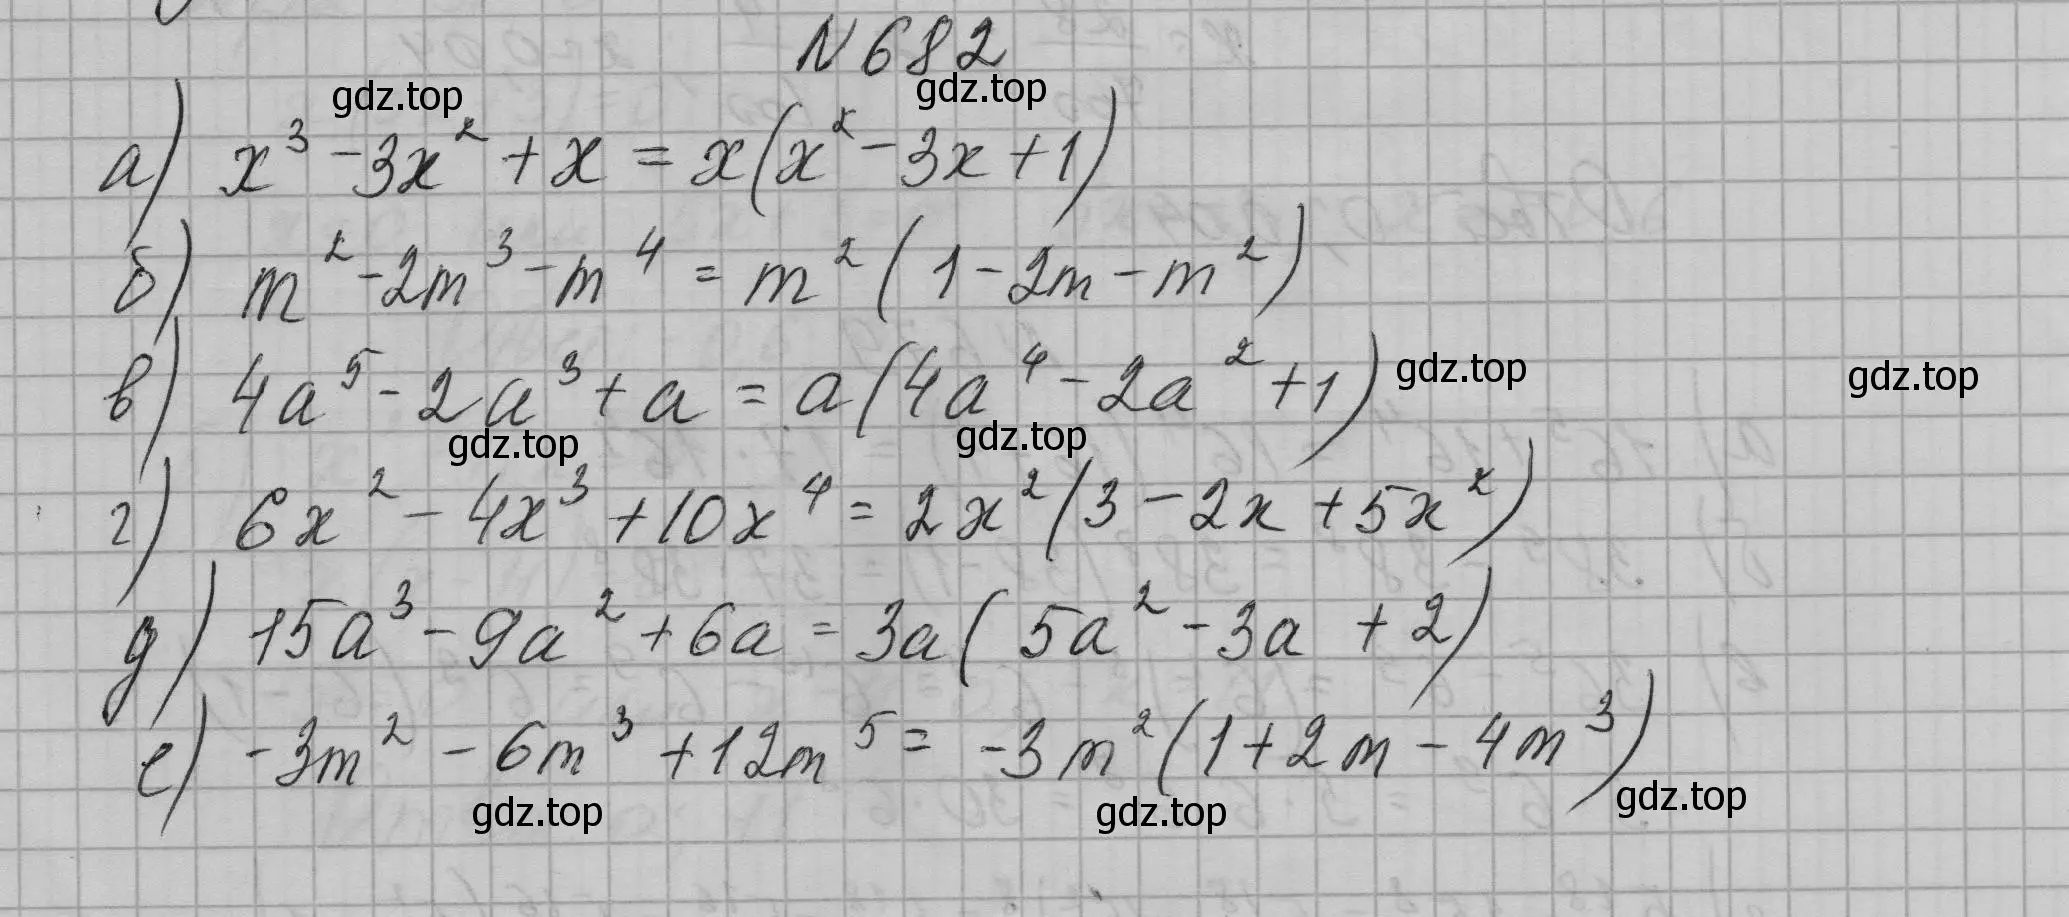 N 682
gdz.top gdz.top
а) x³ - 3x² + x = x(x² - 3x + 1)
б) m² - 2m³ - m⁴ = m²(1 - 2m - m²)
в) 4a⁵ - 2a³ + a = a(4a⁴ - 2a² + 1) gdz.top gdz.top
gdz.top gdz.top
г) 6x² - 4x³ + 10x⁴ = 2x²(3 - 2x + 5x²)
д) 15a³ - 9a² + 6a = 3a(5a² - 3a + 2)
е) -3m² - 6m³ + 12m⁵ = -3m²(1 + 2m - 4m³)
gdz.top gdz.top gdz.top